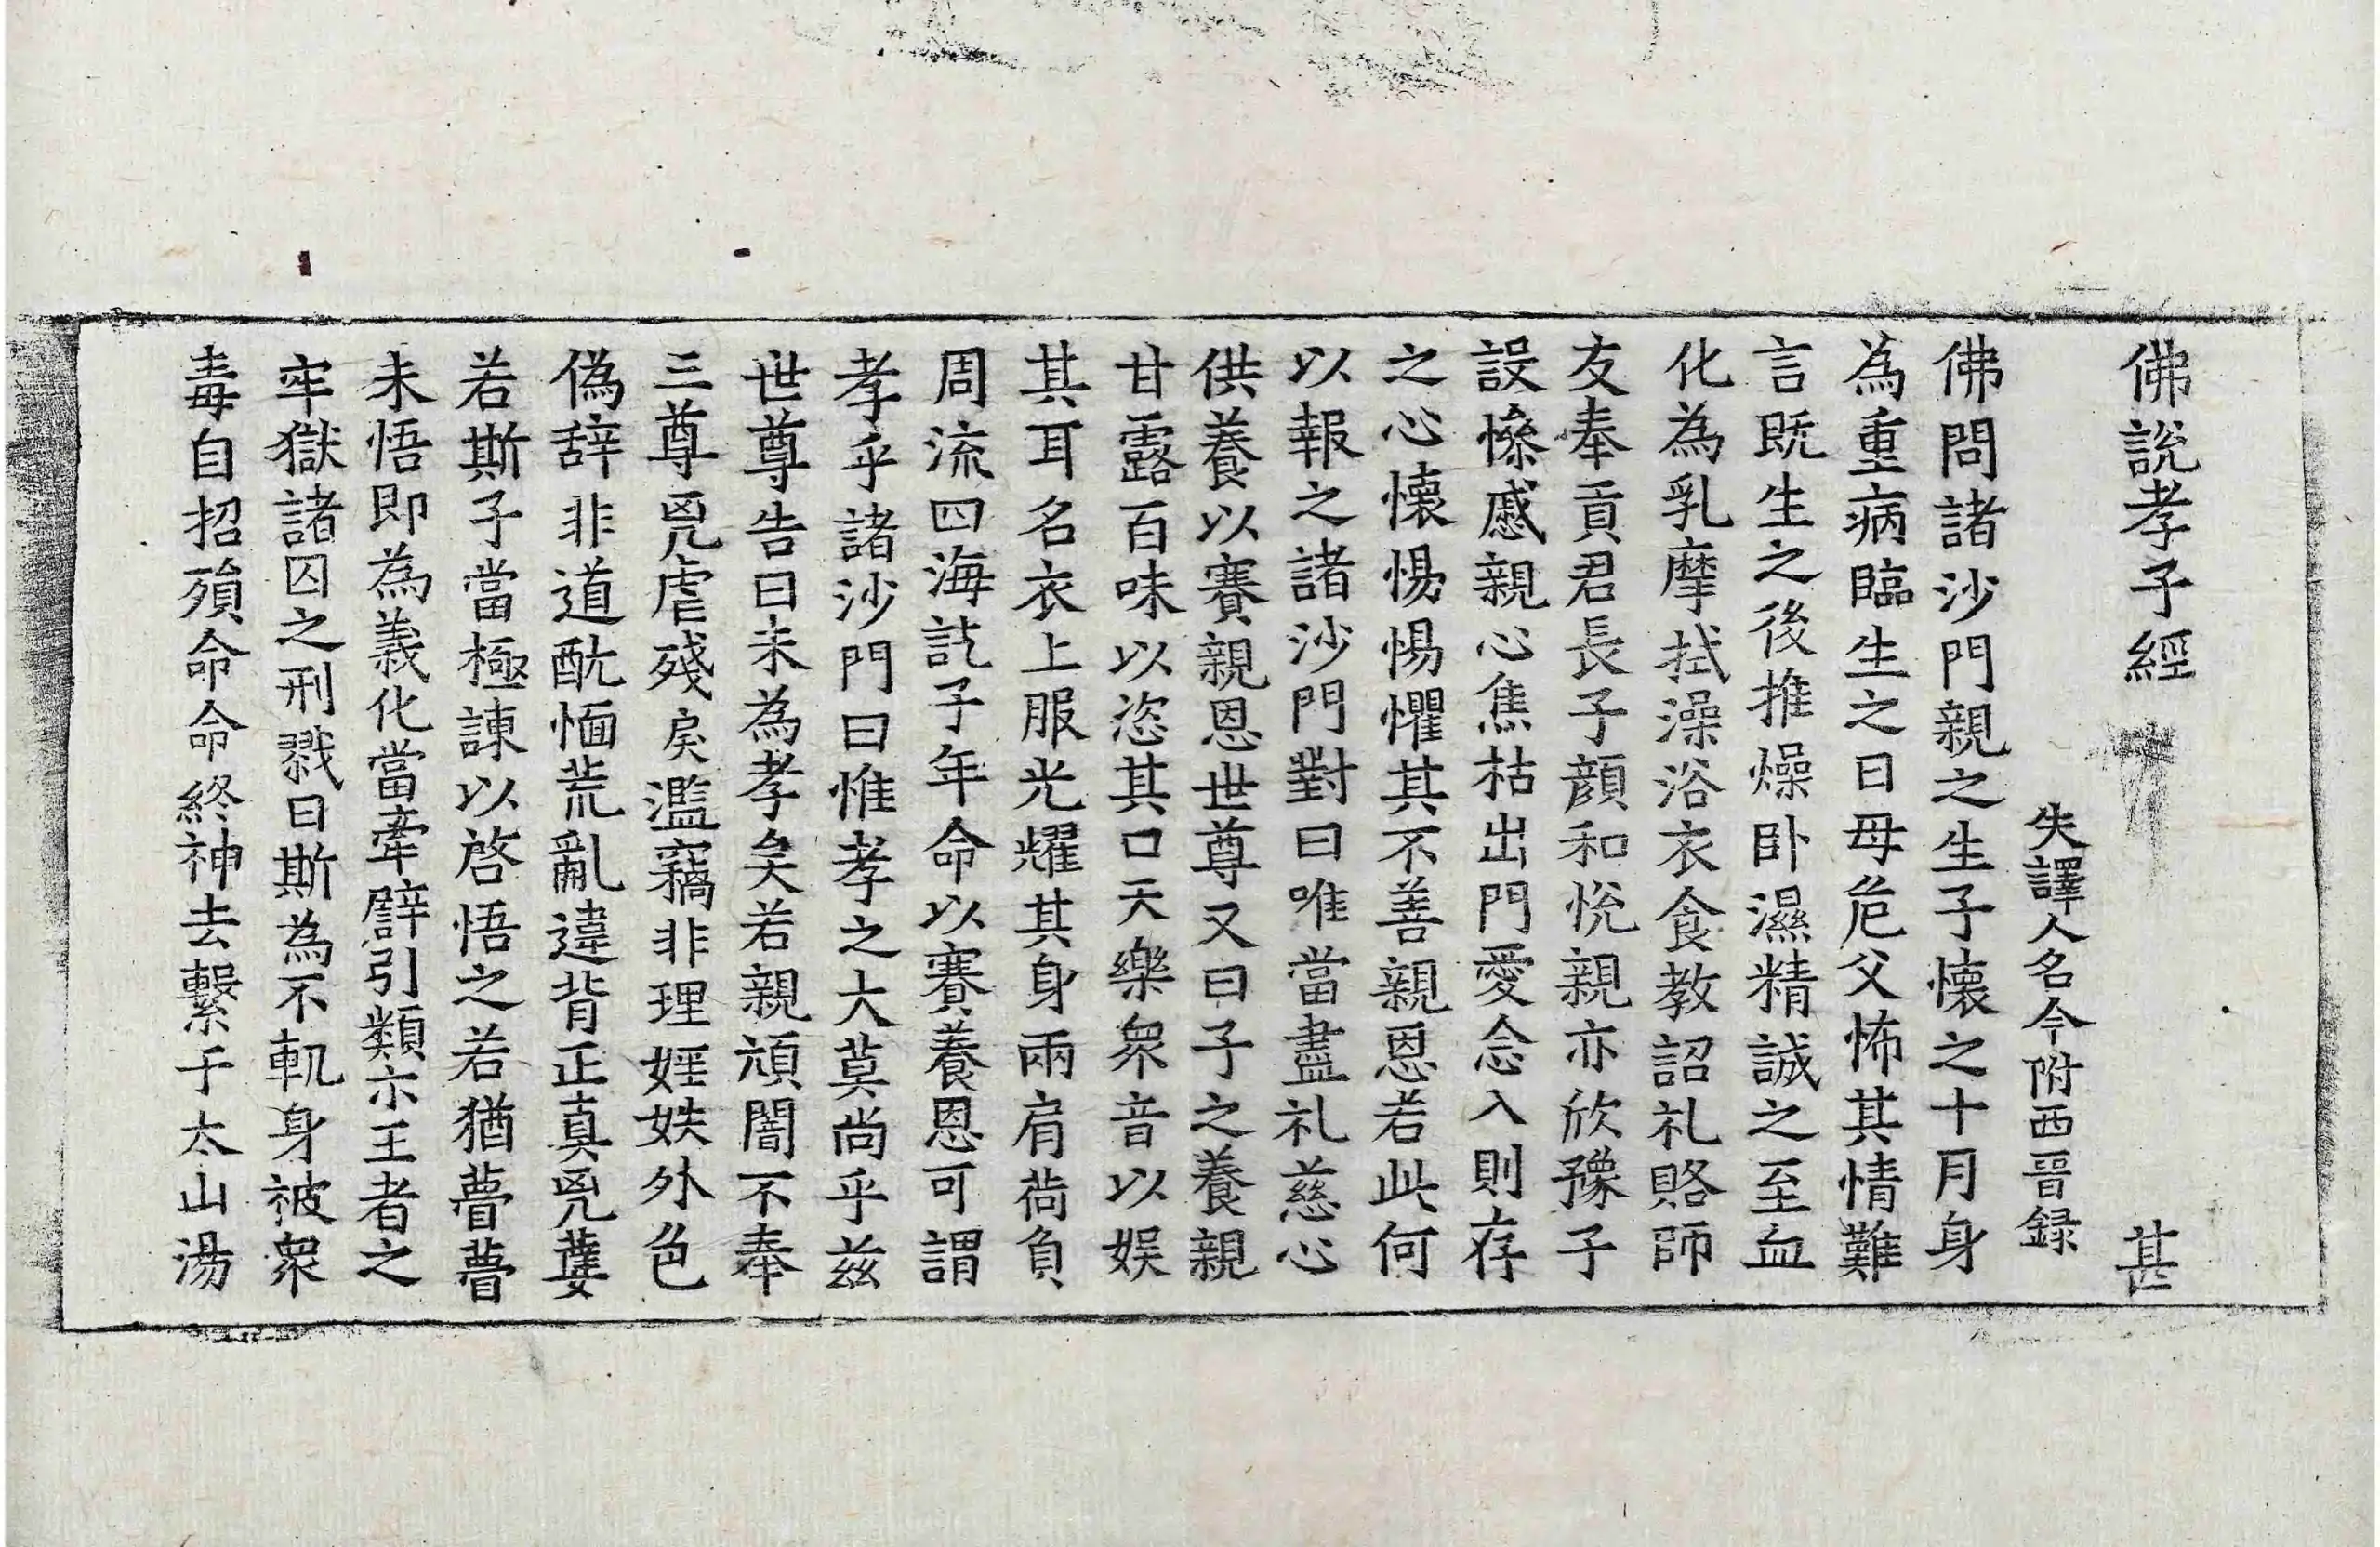 佛說孝子經 甚
失譯人名今附西晉録
佛問諸沙門親之生子懷之十月身
為重病臨生之日母危父怖其情難
言既生之後推燥卧濕精誠之至血
化為乳摩拭澡浴衣食教詔礼賂師
友奉貢君長子顔和恱親亦欣豫子
設慘慼親心焦枯出門愛念入則存
之心懷惕惕懼其不善親恩若此何
以報之諸沙門對曰唯當盡礼慈心
供養以賽親恩世尊又曰子之養親
甘露百味以恣其口天樂衆音以娱
其耳名衣上服光耀其身兩肩荷負
周流四海訖子年命以賽養恩可謂
孝乎諸沙門曰惟孝之大莫尚乎兹
世尊告曰未為孝矣若親頑闇不奉
三尊兇虐殘戾濫竊非理婬妷外色
偽辞非道酖愐荒亂違背正真兇孽
若斯子當極諫以啓悟之若猶瞢瞢
未悟即為義化當牽譬引類亦王者之
牢獄諸囚之刑戮曰斯為不軌身被衆
毒自招殞命命終神去繫于太山湯